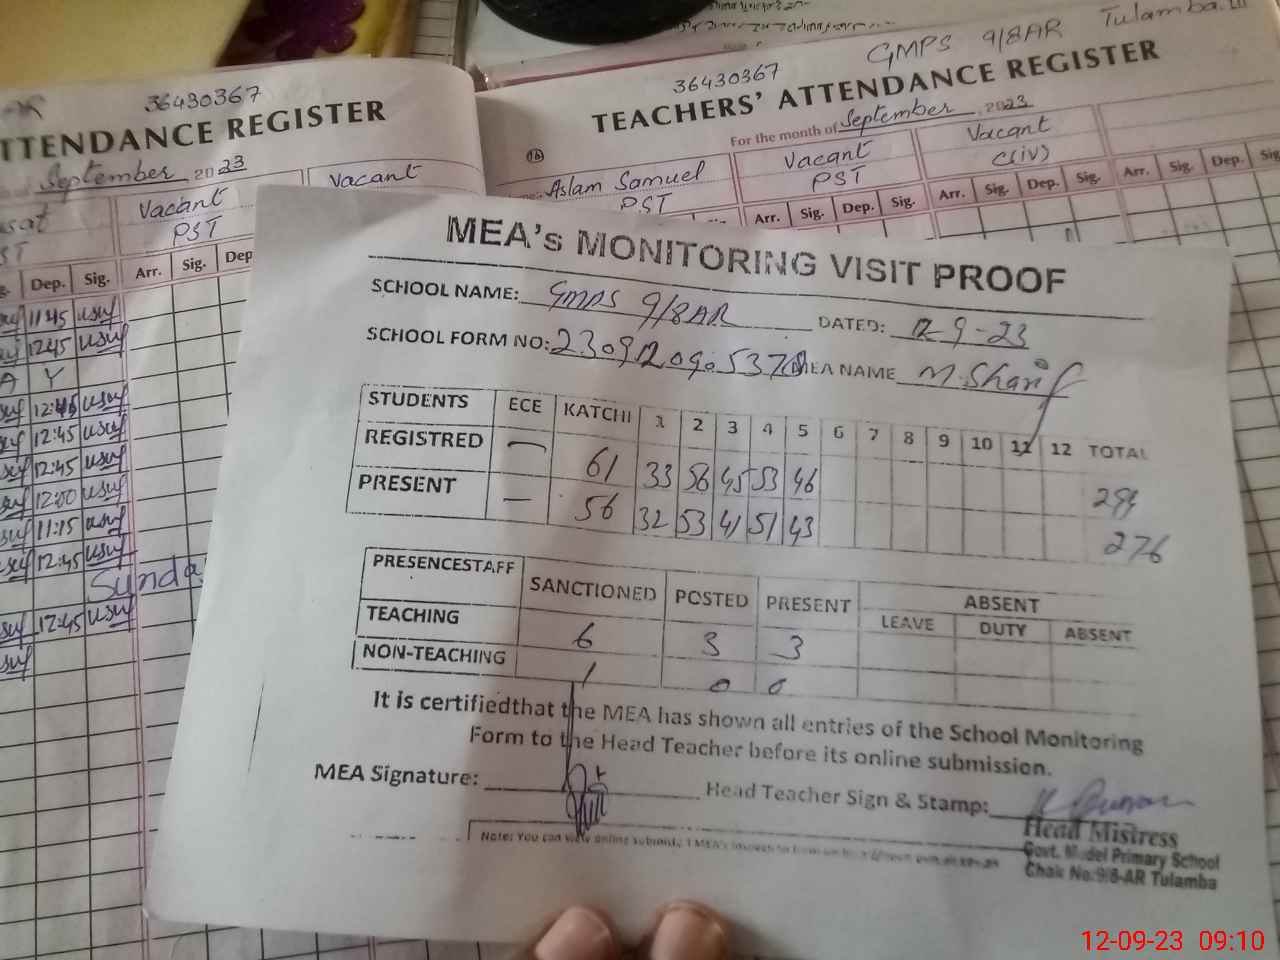 36430367
TTENDANCE REGISTER
September 2023
Vacant
Vacant
PST
Dep. Sig. Arr. Sig. Dep
11:45
12:45
A Y
12:45
12:45
12:45
12:00
11:15
12:45
Sunda
12:45
GMPS 9/8AR Tulamba
36430367
TEACHERS' ATTENDANCE REGISTER
For the month of September, 2023
16
Aslam Samuel
PST
Vacant
PST
Vacant
C(iv)
Arr. Sig. Dep. Sig. Arr. Sig. Dep. Sig. Arr. Sig. Dep. Sig
MEA's MONITORING VISIT PROOF
SCHOOL NAME: GMPS 9/8AR DATED: 12-9-23
SCHOOL FORM NO: MEA NAME M. Sharif
STUDENTS ECE KATCHI 1 2 3 4 5 6 7 8 9 10 11 12 TOTAL
REGISTRED — 61 33 56 45 53 46 294
PRESENT — 56 32 53 41 51 43 276
PRESENCESTAFF SANCTIONED POSTED PRESENT ABSENT
LEAVE DUTY ABSENT
TEACHING 6 3 3
NON-TEACHING 1 0 0
It is certifiedthat the MEA has shown all entries of the School Monitoring
Form to the Head Teacher before its online submission.
MEA Signature:
Head Teacher Sign & Stamp:
Head Mistress
Govt. Model Primary School
Chak No:9/8-AR Tulamba
Note: You can view online
12-09-23 09:10